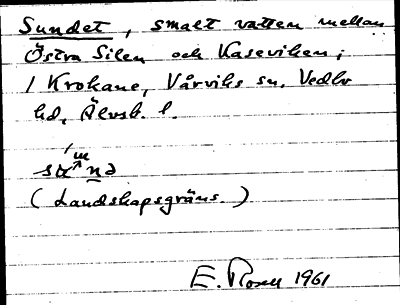 Sundet, smalt vatten mellan
Östra Silen och Kaseviken;
i Krokane, Vårviks sn, Vedbo
hd, Älvsb. l.
(Landskapsgräns.)
E. Rosell 1961